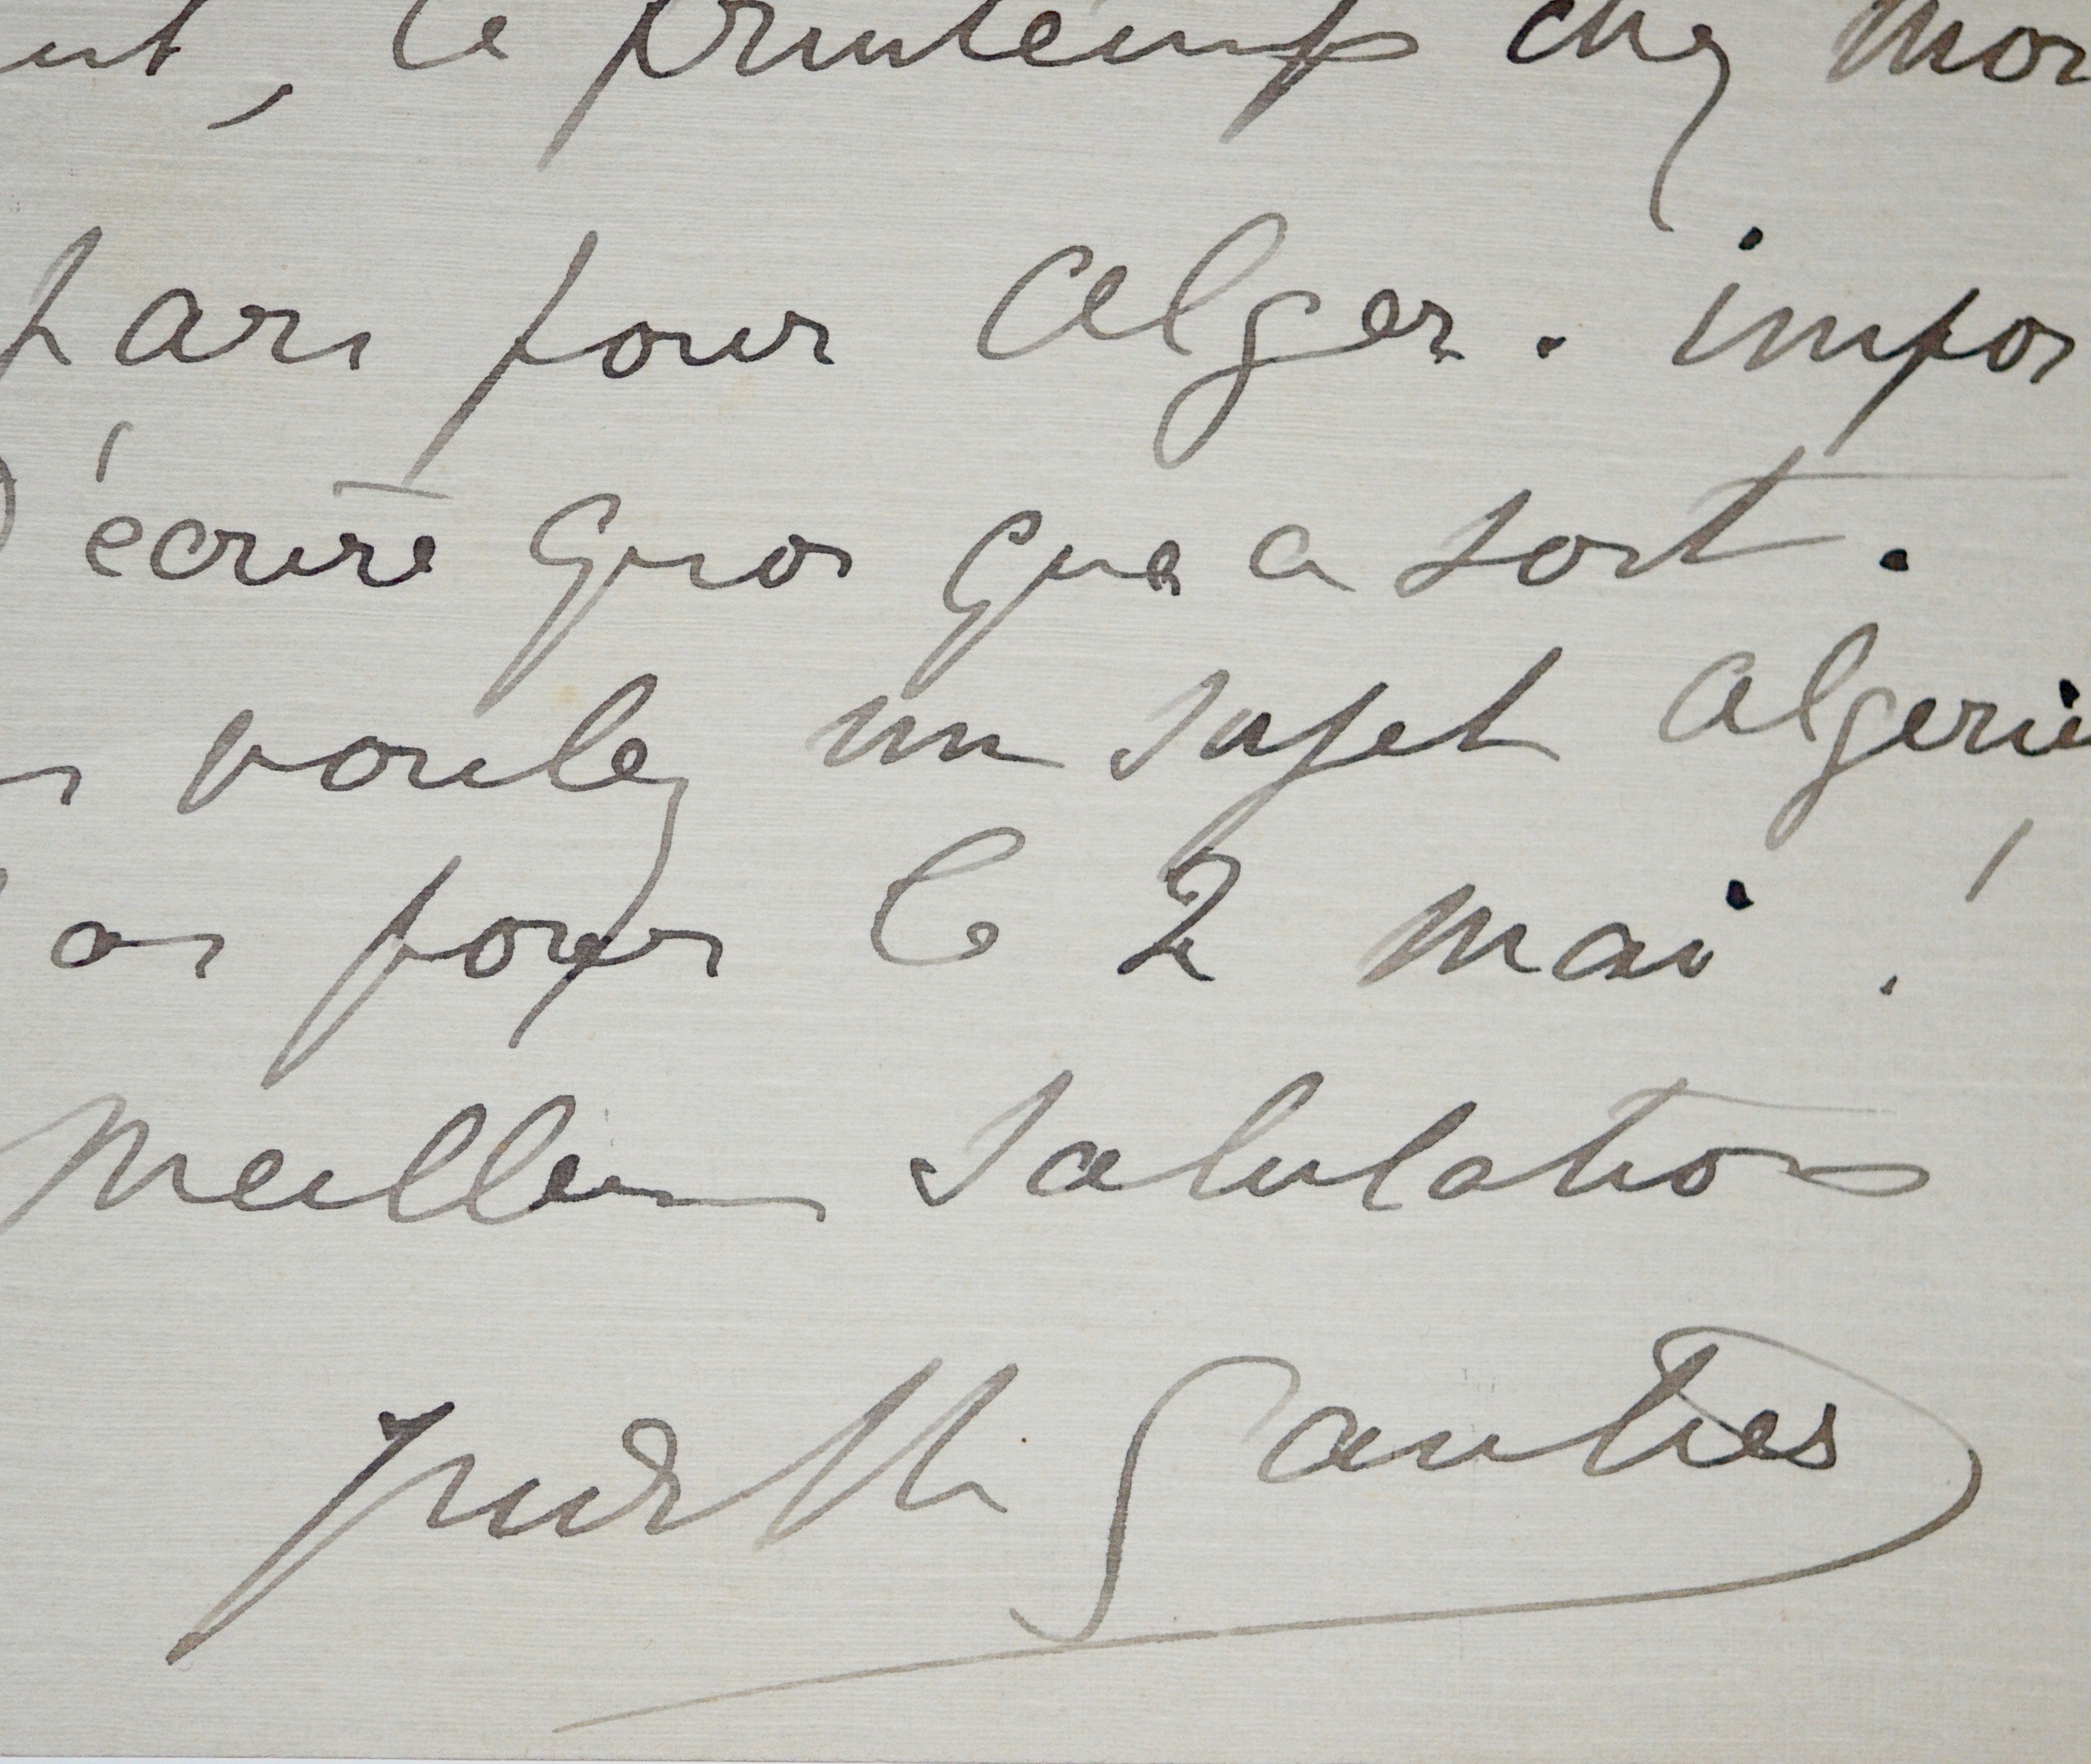 , le printemps chez mon
pars pour Alger. impos
écrire quoi que ce soit.
voulez un sujet Algerie
pour le 2 mai!
Meilleures Salutations
Judith Gautier